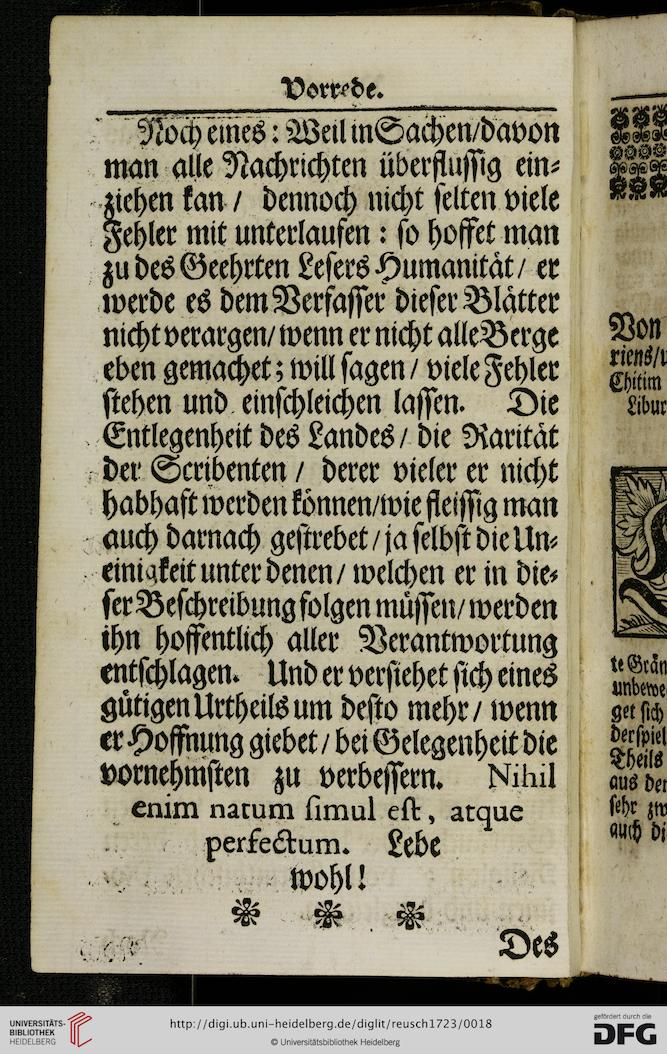 Vorrede.
Noch eines: Weil in Sachen/davon
man alle Nachrichten überflussig ein⸗
ziehen kan / dennoch nicht selten viele
Fehler mit unterlaufen : so hoffet man
zu des Geehrten Lesers Humanität / er
werde es dem Verfasser dieser Blätter
nicht verargen/ wenn er nicht alle Berge
eben gemachet; will sagen / viele Fehler
stehen und einschleichen lassen. Die
Entlegenheit des Landes / die Rarität
der Scribenten / derer vieler er nicht
habhaft werden können/wie fleissig man
auch darnach gestrebet / ja selbst die Un⸗
einigkeit unter denen / welchen er in die⸗
ser Beschreibung folgen müssen/ werden
ihn hoffentlich aller Verantwortung
entschlagen. Und er versiehet sich eines
gütigen Urtheils um desto mehr / wenn
er Hoffnung giebet / bei Gelegenheit die
vornehmsten zu verbessern. Nihil
enim natum simul est, atque
perfectum. Lebe
wohl!
Des
Von
riens/
Chitim
Libur
te Grän
unbewe
get sich
der spiel
Theils
aus der
sehr zw
auch di
UNIVERSITÄTS-
BIBLIOTHEK
HEIDELBERG
http://digi.ub.uni-heidelberg.de/diglit/reusch1723/0018
© Universitätsbibliothek Heidelberg
gefördert durch die
DFG